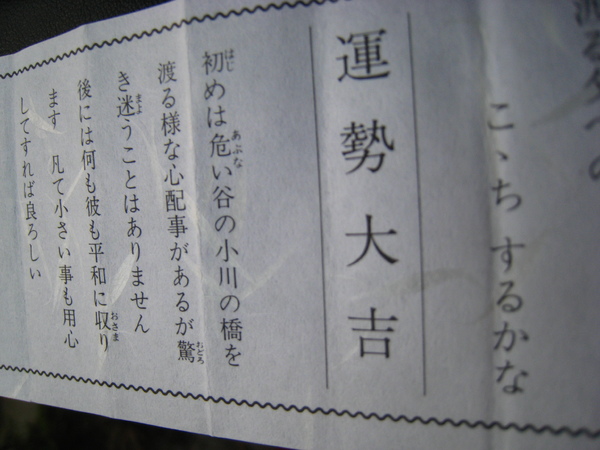 こゝちするかな
運勢大吉
初めは危い谷の小川の橋を
渡る様な心配事があるが驚
き迷うことはありません
後には何も彼も平和に収り
ます 凡て小さい事も用心
してすれば良ろしい